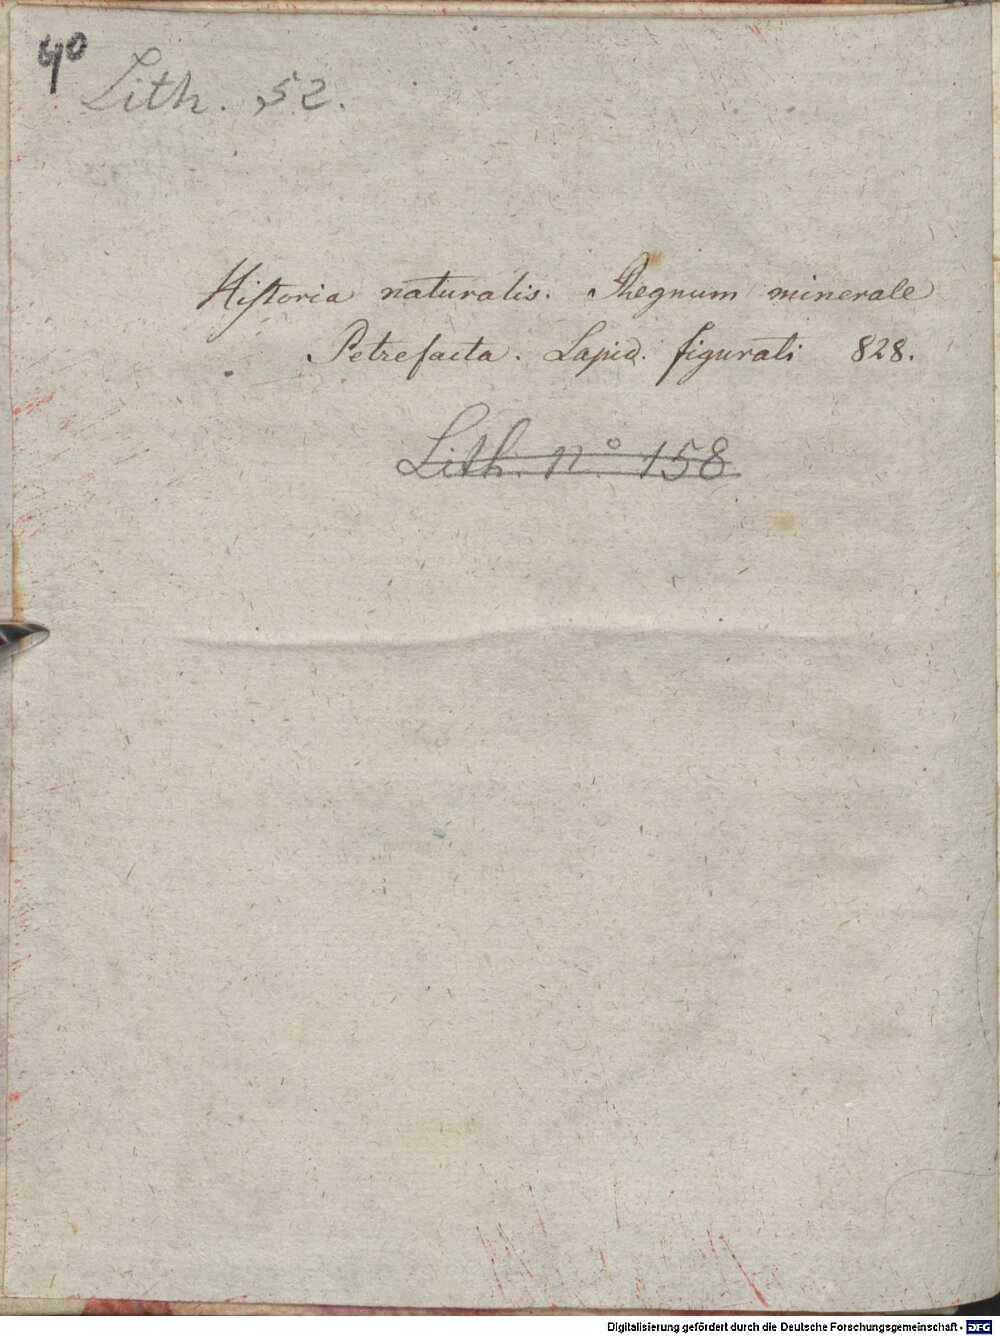 4º
Lith. 52.
Historia naturalis. Regnum minerale
Petrefacta. Lapid. figurati 828.
Lith. nº 158
Digitalisierung gefördert durch die Deutsche Forschungsgemeinschaft - DFG